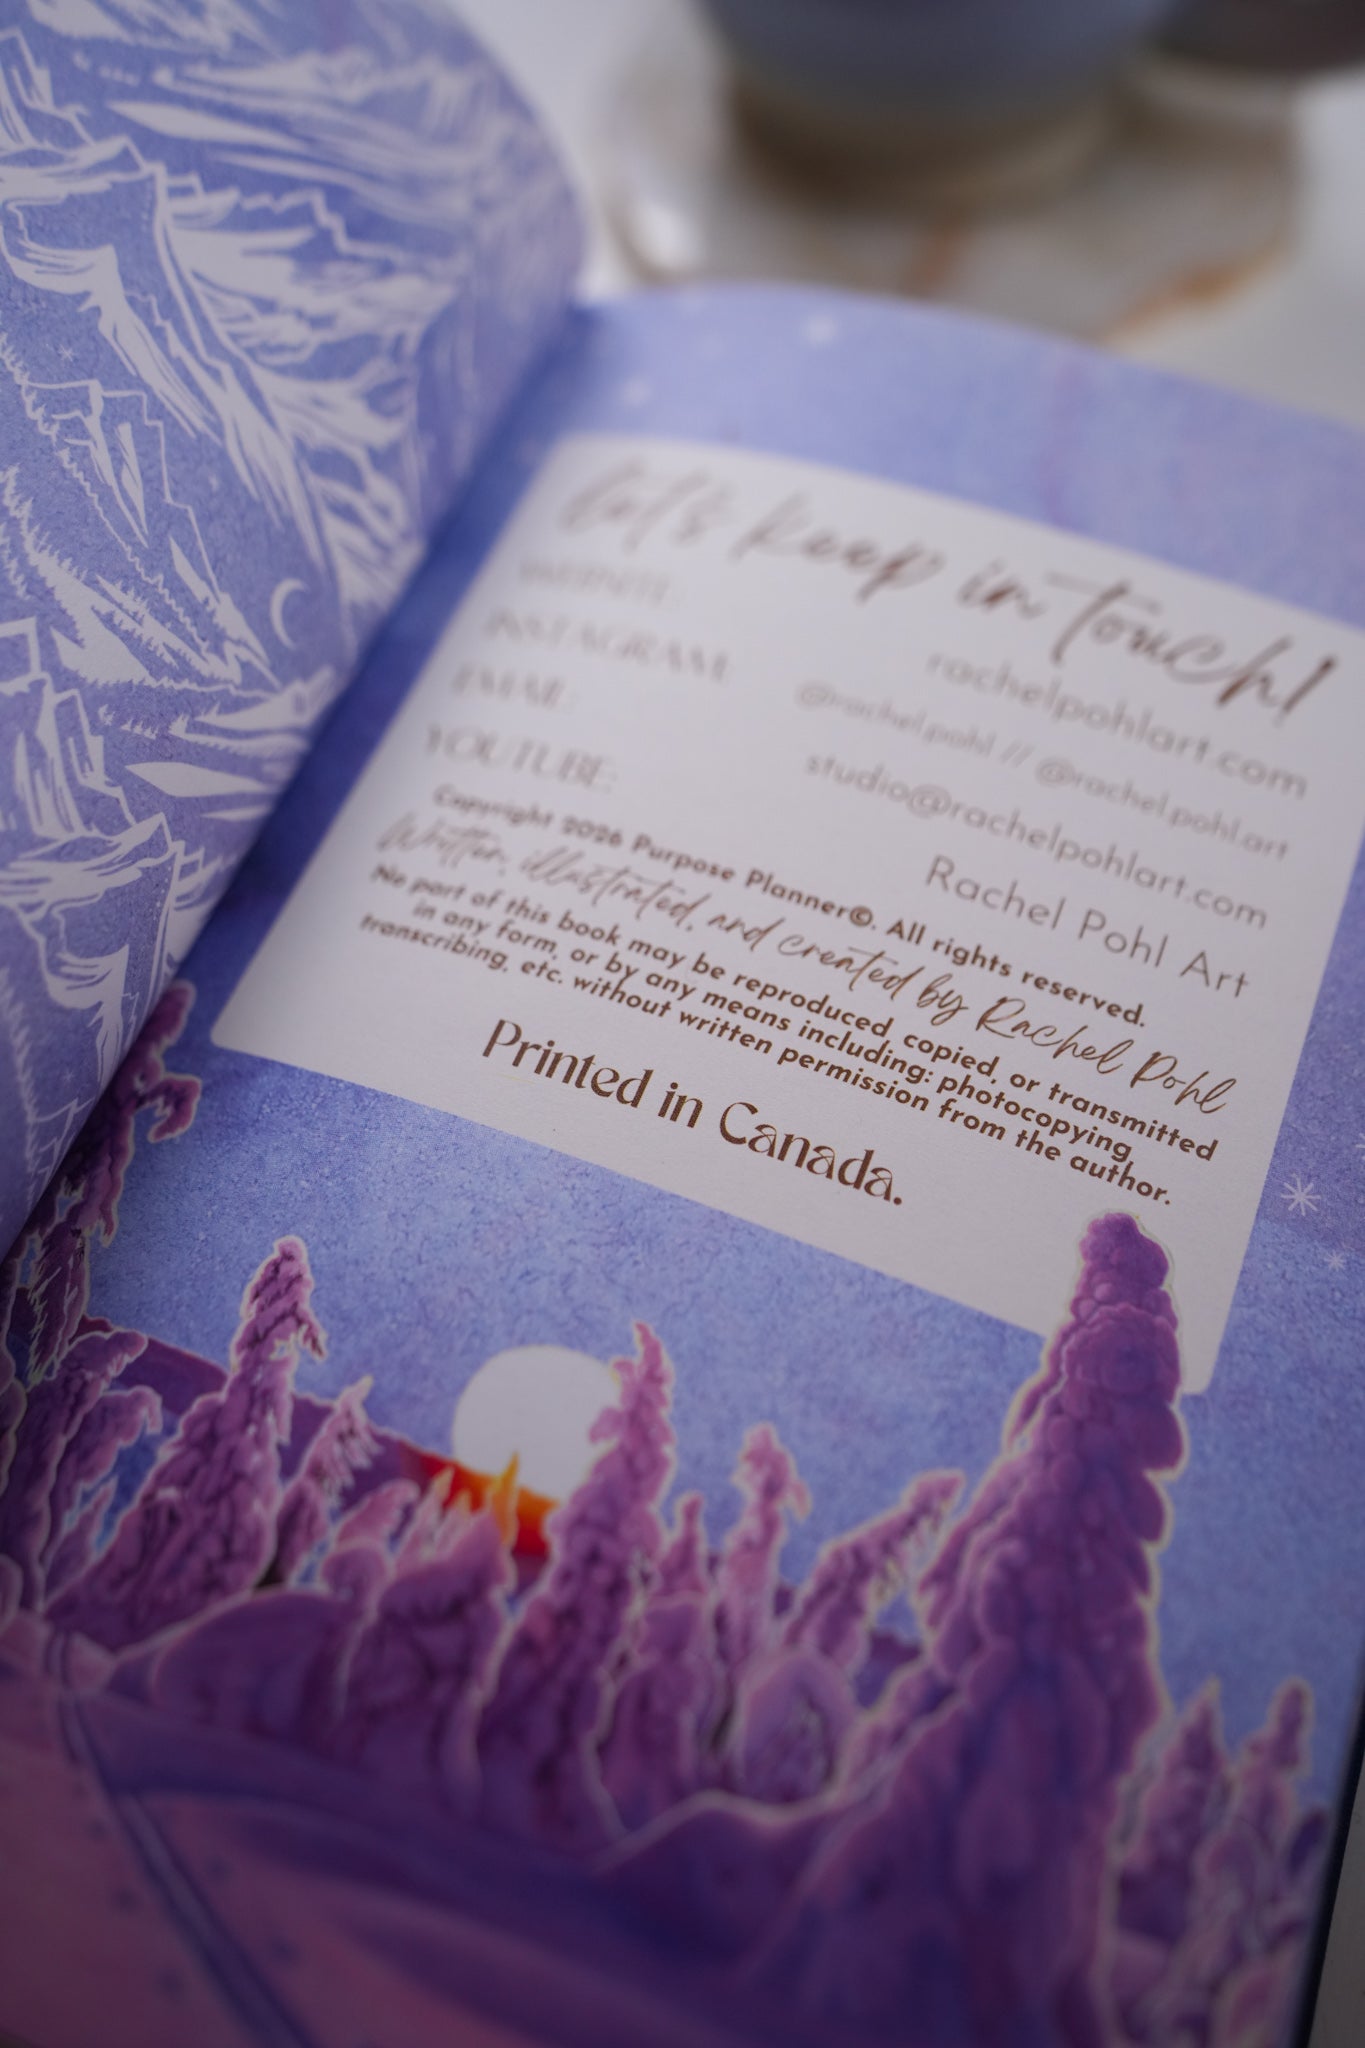 Let's keep in touch!
WEBSITE: rachelpohlart.com
INSTAGRAM: @rachel.pohl // @rachel.pohl.art
EMAIL: studio@rachelpohlart.com
YOUTUBE: Rachel Pohl Art
Copyright 2026 Purpose Planner©. All rights reserved.
Written, illustrated, and created by Rachel Pohl
No part of this book may be reproduced, copied, or transmitted
in any form, or by any means including: photocopying
transcribing, etc. without written permission from the author.
Printed in Canada.